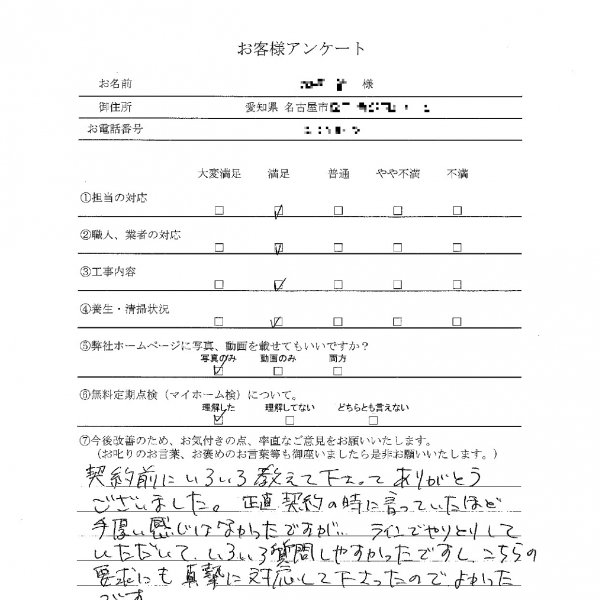 お客様アンケート
お名前 様
御住所 愛知県 名古屋市
お電話番号
大変満足 満足 普通 やや不満 不満
①担当の対応 □ ☑ □ □ □
②職人、業者の対応 □ ☑ □ □ □
③工事内容 □ ☑ □ □ □
④養生・清掃状況 □ ☑ □ □ □
⑤弊社ホームページに写真、動画を載せてもいいですか？
写真のみ 動画のみ 両方
☑ □ □
⑥無料定期点検（マイホーム検）について。
理解した 理解してない どちらとも言えない
☑ □ □
⑦今後改善のため、お気付きの点、率直なご意見をお願いいたします。
（お叱りのお言葉、お褒めのお言葉等も御座いましたら是非お願いいたします。）
契約前にいろいろ教えて下さってありがとう
ございました。正直契約の時に言っていたほど
手厚い感じはなかったですが… ラインでやりとりして
いただいて、いろいろ質問しやすかったですし、こちらの
要求にも真摯に対応して下さったのでよかった
です